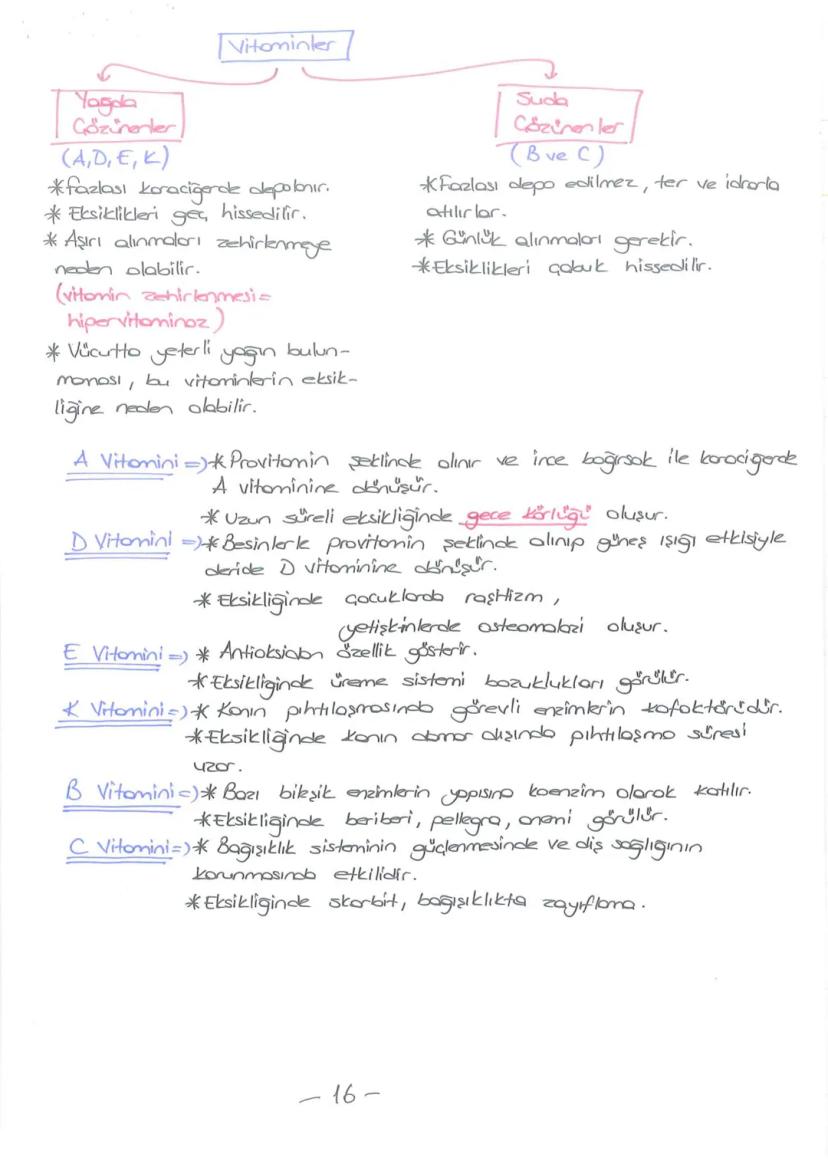 Vitaminler
Yağda
Çözünenler
(A, D, E, K)
*Fazlası karaciğerde depolanır.
* Eksiklikleri geç hissedilir.
* Aşırı alınmaları zehirlenmeye
neden olabilir.
(vitamin zehirlenmesi =
hipervitaminoz)
* Vücutta yeterli yağın bulun-
maması, bu vitaminlerin eksik-
liğine neden olabilir.
Suda
Çözünenler
(B ve C)
*Fazlası depo edilmez, ter ve idrarla
atılırlar.
* Günlük alınmaları gerekir.
*Eksiklikleri çabuk hissedilir.
A Vitamini =>* Provitamin şeklinde alınır ve ince bağırsak ile karaciğerde
A vitaminine dönüşür.
* Uzun süreli eksikliğinde gece körlüğü oluşur.
D Vitamini =>* Besinlerle provitamin şeklinde alınıp güneş ışığı etkisiyle
deride D vitaminine dönüşür.
* Eksikliğinde çocuklarda raşitizm,
yetişkinlerde osteomalazi oluşur.
E Vitamini => * Antioksidan özellik gösterir.
*Eksikliğinde üreme sistemi bozuklukları görülür.
K Vitamini =>* Kanın pıhtılaşmasında görevli enzimlerin kofaktörüdür.
*Eksikliğinde kanın damar dışında pıhtılaşma süresi
uzar.
B Vitamini =>* Bazı bileşik enzimlerin yapısına koenzim olarak katılır.
*Eksikliğinde beriberi, pellegra, anemi görülür.
C Vitamini =>* Bağışıklık sisteminin güçlenmesinde ve diş sağlığının
korunmasında etkilidir.
*Eksikliğinde skorbit, bağışıklıkta zayıflama.
- 16 -